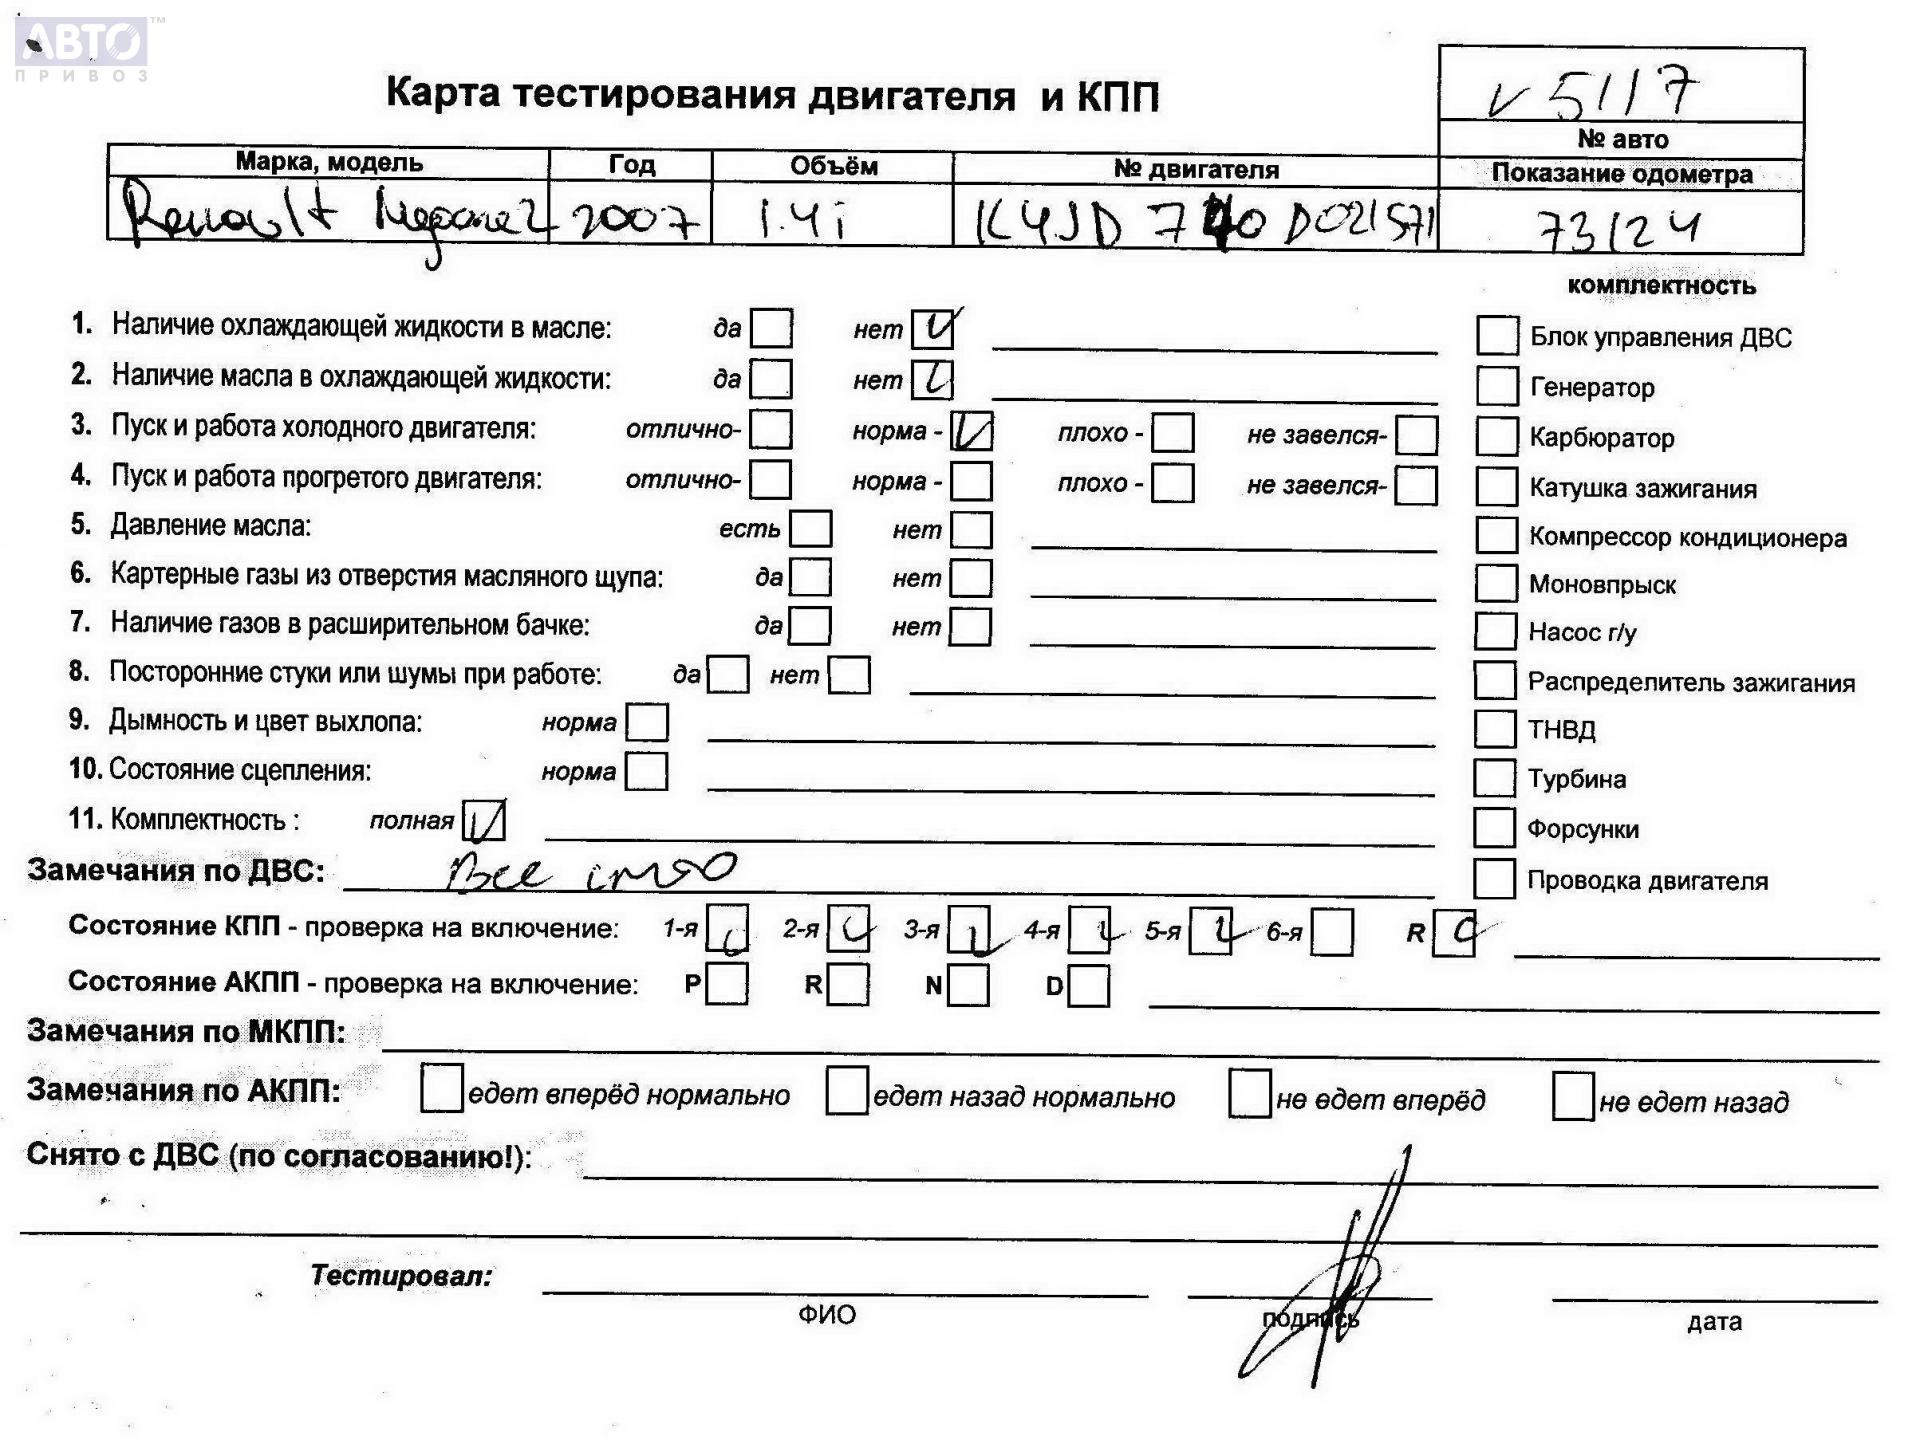 АВТО™
ПРИВОЗ
Карта тестирования двигателя и КПП
v 5117
№ авто
Марка, модель Год Объём № двигателя Показание одометра
Renault 2007 1.4i K4JD 740 D021571 73124
комплектность
1. Наличие охлаждающей жидкости в масле: да нет V
Блок управления ДВС
2. Наличие масла в охлаждающей жидкости: да нет V
Генератор
3. Пуск и работа холодного двигателя: отлично- норма - V плохо - не завелся-
Карбюратор
4. Пуск и работа прогретого двигателя: отлично- норма - плохо - не завелся-
Катушка зажигания
5. Давление масла: есть нет
Компрессор кондиционера
6. Картерные газы из отверстия масляного щупа: да нет
Моновпрыск
7. Наличие газов в расширительном бачке: да нет
Насос г/у
8. Посторонние стуки или шумы при работе: да нет
Распределитель зажигания
9. Дымность и цвет выхлопа: норма
ТНВД
10. Состояние сцепления: норма
Турбина
11. Комплектность : полная V
Форсунки
Замечания по ДВС: Все
Проводка двигателя
Состояние КПП - проверка на включение: 1-я 2-я 3-я 4-я 5-я 6-я R
Состояние АКПП - проверка на включение: P R N D
Замечания по МКПП:
Замечания по АКПП: едет вперёд нормально едет назад нормально не едет вперёд не едет назад
Снято с ДВС (по согласованию!):
Тестировал:
ФИО подпись дата